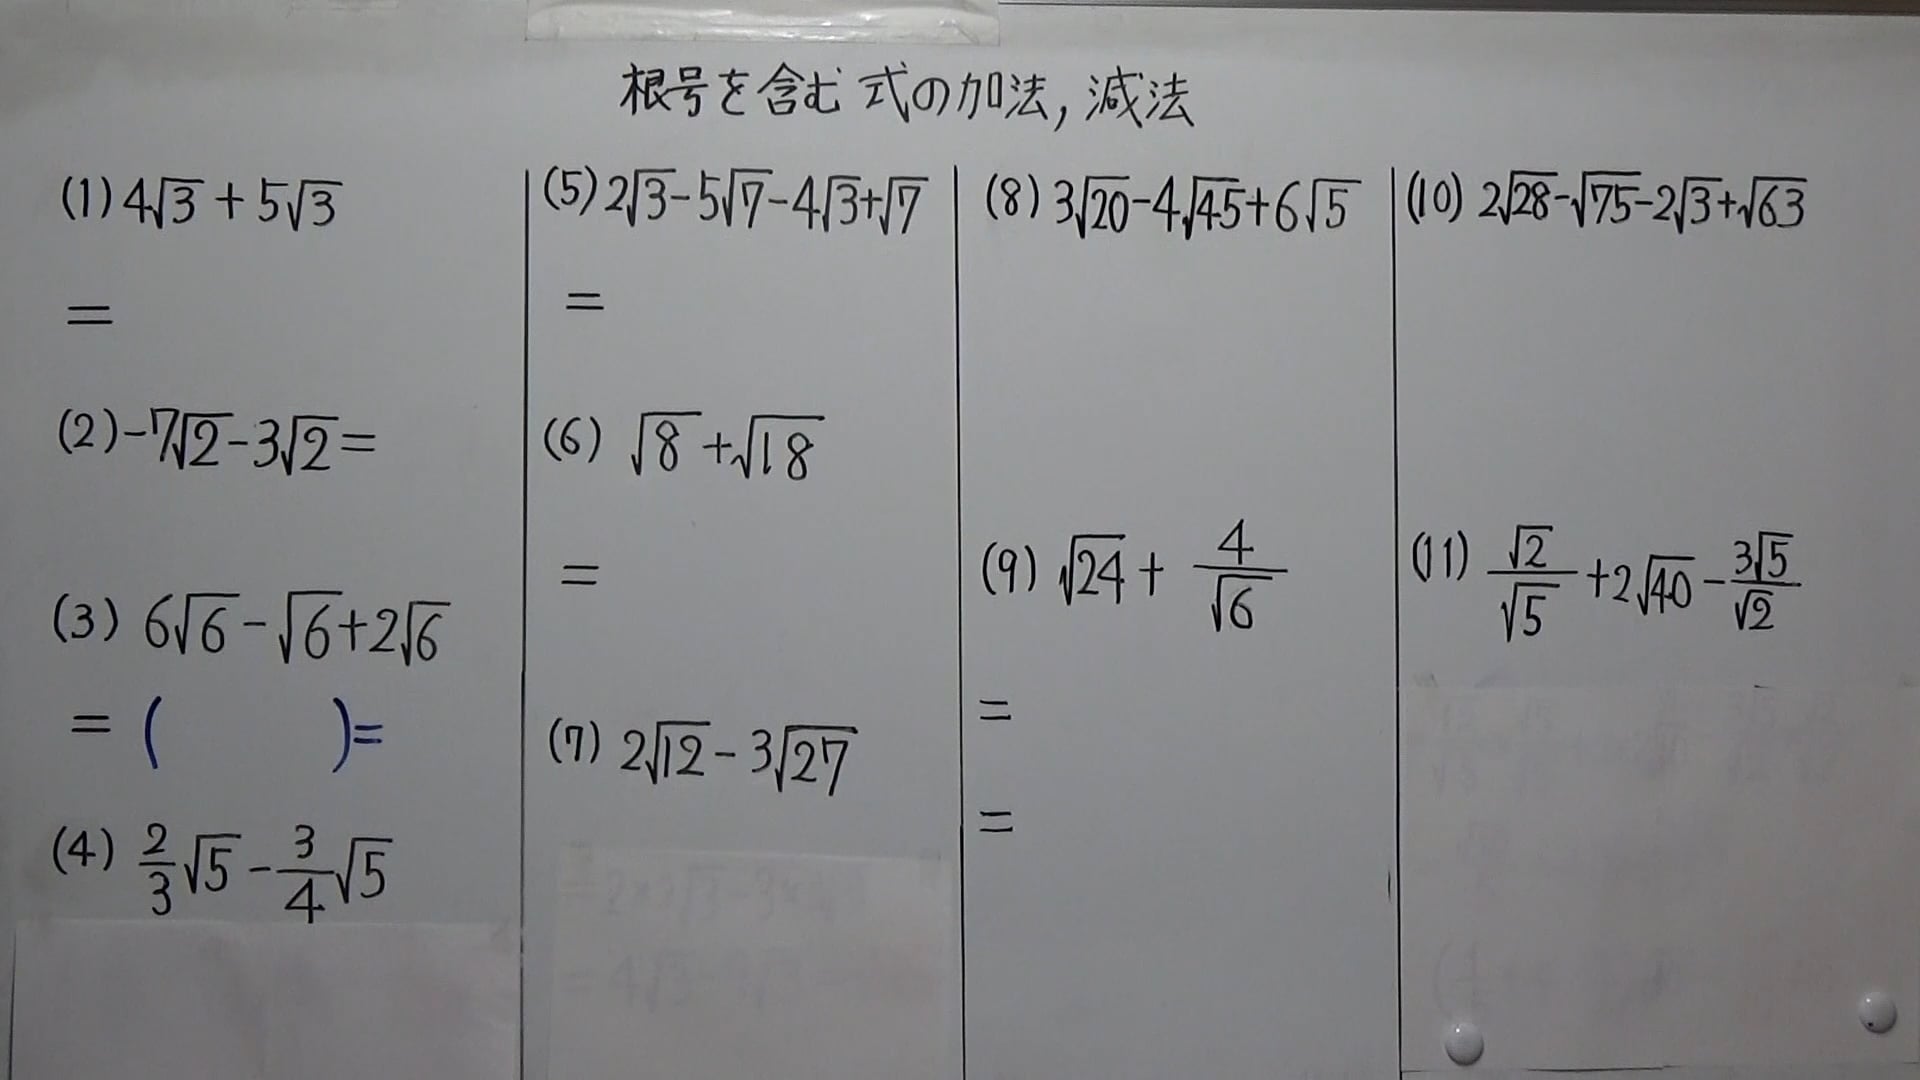 根号を含む 式の加法, 減法
(1) 4√3 + 5√3
=
(2) -7√2 - 3√2 =
(3) 6√6 - √6 + 2√6
= (     ) =
(4) 2/3 √5 - 3/4 √5
(5) 2√3 - 5√7 - 4√3 + √7
=
(6) √8 + √18
=
(7) 2√12 - 3√27
(8) 3√20 - 4√45 + 6√5
(9) √24 + 4/√6
=
=
(10) 2√28 - √75 - 2√3 + √63
(11) √2/√5 + 2√40 - 3√5/√2